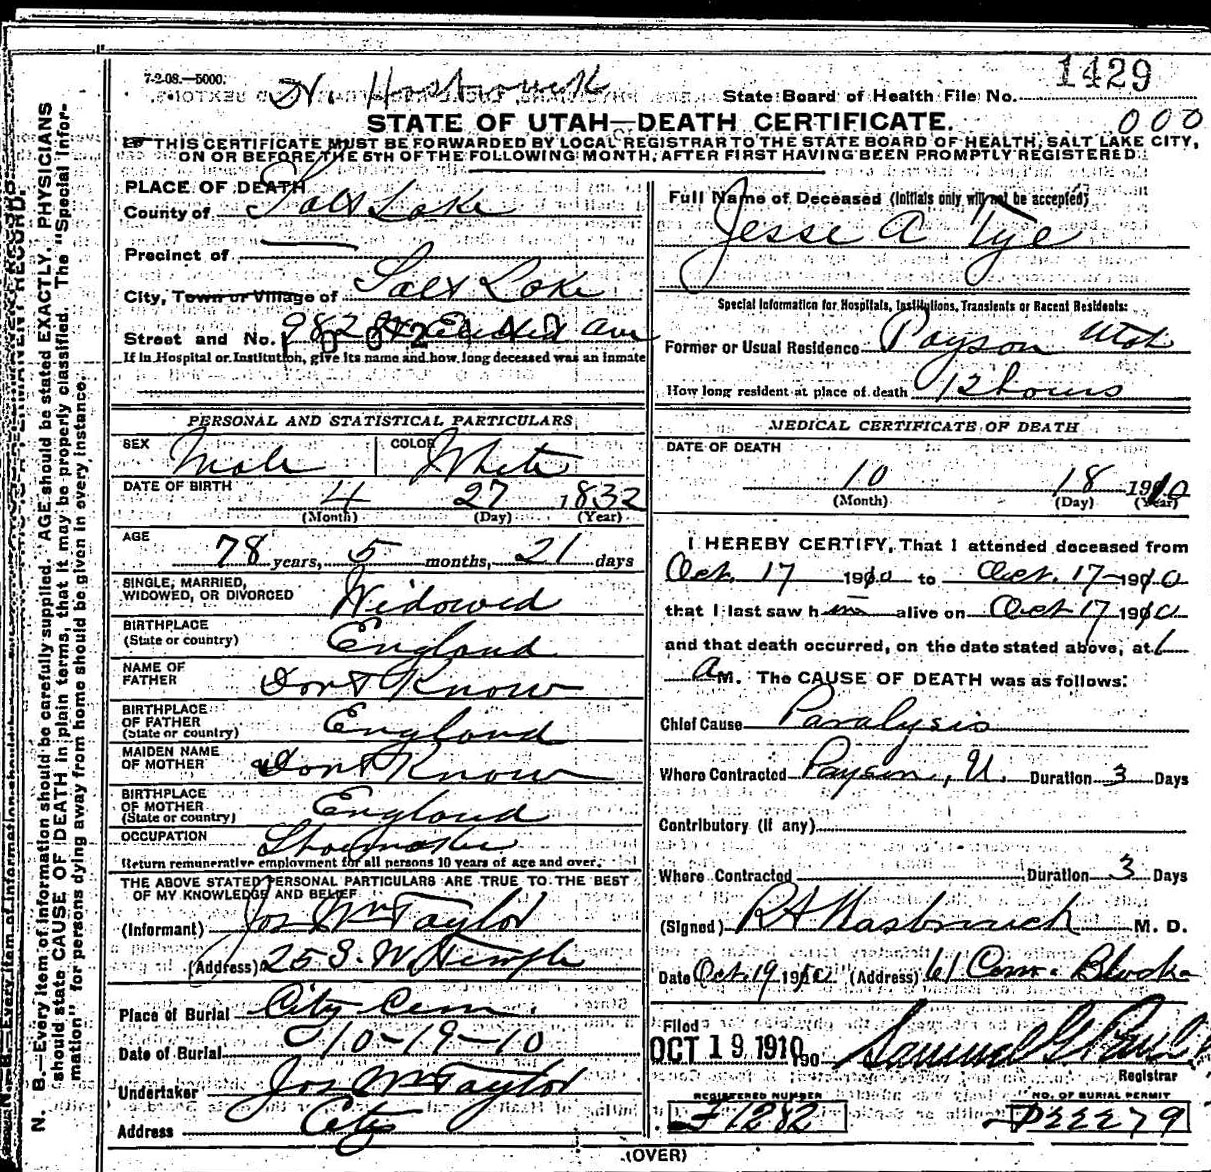 7-2-08.—5000.
State Board of Health File No. 1429
000
STATE OF UTAH—DEATH CERTIFICATE.
THIS CERTIFICATE MUST BE FORWARDED BY LOCAL REGISTRAR TO THE STATE BOARD OF HEALTH, SALT LAKE CITY,
ON OR BEFORE THE 5TH OF THE FOLLOWING MONTH, AFTER FIRST HAVING BEEN PROMPTLY REGISTERED.
PLACE OF DEATH
County of Salt Lake
Precinct of
City, Town or Village of Salt Lake
Street and No. 982 Ave
If in Hospital or Institution, give its name and how long deceased was an inmate
Full Name of Deceased (Initials only will not be accepted)
Jesse A Tye
Special Information for Hospitals, Institutions, Transients or Recent Residents:
Former or Usual Residence Payson Utah
How long resident at place of death 12 hours
PERSONAL AND STATISTICAL PARTICULARS
SEX Male COLOR White
DATE OF BIRTH 4 27 1832
(Month) (Day) (Year)
AGE 78 years, 5 months, 21 days
SINGLE, MARRIED,
WIDOWED, OR DIVORCED Widowed
BIRTHPLACE
(State or country) England
NAME OF
FATHER Dont Know
BIRTHPLACE
OF FATHER
(State or country) England
MAIDEN NAME
OF MOTHER Dont Know
BIRTHPLACE
OF MOTHER
(State or country) England
OCCUPATION Shoemaker
Return remunerative employment for all persons 10 years of age and over.
THE ABOVE STATED PERSONAL PARTICULARS ARE TRUE TO THE BEST
OF MY KNOWLEDGE AND BELIEF
(Informant) Jos Wm Taylor
(Address) 25 S. W. Temple
Place of Burial City Cem.
Date of Burial 10-19-10
Undertaker Jos Wm Taylor
Address City
MEDICAL CERTIFICATE OF DEATH
DATE OF DEATH
10 18 1910
(Month) (Day) (Year)
I HEREBY CERTIFY, That I attended deceased from
Oct. 17 1910 to Oct. 17-1910
that I last saw him alive on Oct 17 1910
and that death occurred, on the date stated above, at 1
A M. The CAUSE OF DEATH was as follows:
Chief Cause Paralysis
Where Contracted Payson, U. Duration 3 Days
Contributory (if any)
Where Contracted Duration 3 Days
(Signed) R A Hasbrouck M. D.
Date Oct. 19 1910 (Address) 61 Com. Block
Filed
OCT 19 1910 190 Samuel G Paul
Registrar
REGISTERED NUMBER
F1282
NO. OF BURIAL PERMIT
P22279
(OVER)
N. B.—Every item of information should be carefully supplied. AGE should be stated EXACTLY. PHYSICIANS
should state CAUSE OF DEATH in plain terms, that it may be properly classified. The "Special Infor-
mation" for persons dying away from home should be given in every instance.